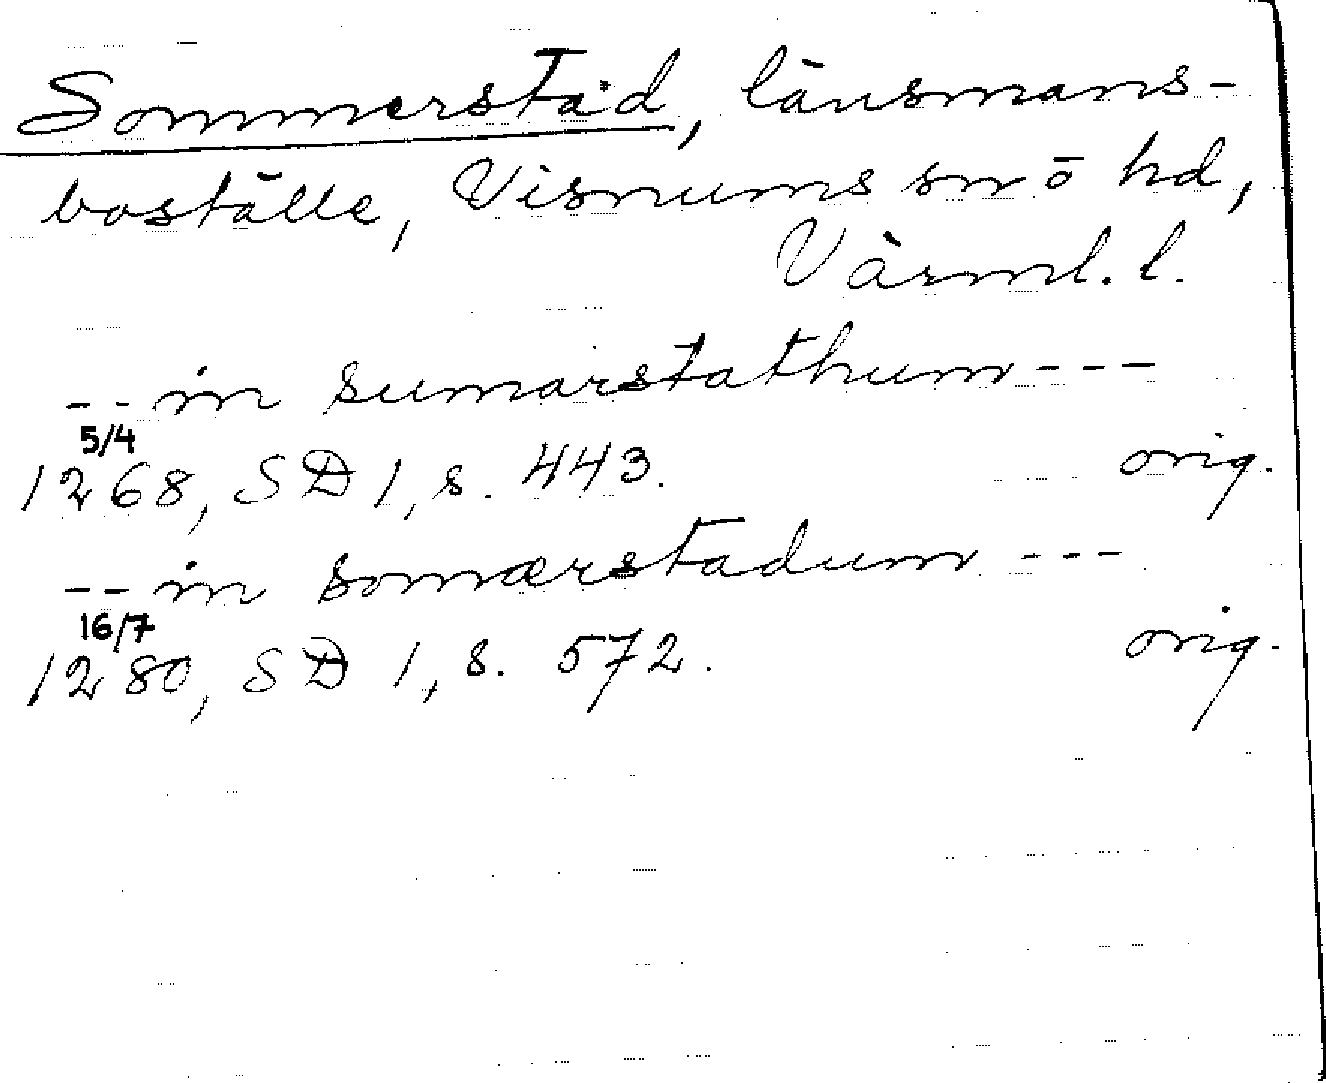 Sommerstad, länsmans-
boställe, Visnums snö hd,
Värml. l.
-- in sumarstathum ---
5/4
1268, SD 1, s. 443. orig.
-- in somærstadum ---
16/7
1280, SD 1, s. 572. orig.